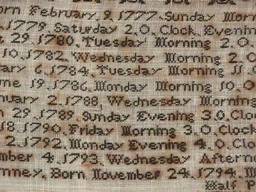 orn February 9, 1777. Sunday Morn
1779 Saturday 2.0. Clock Evenin
29 1780, Tuesday Morning 2.0.
10, 1782, Wednesday Morning
ary 6, 1784, Tuesday Morning 11
ne 19, 1786, Monday Morning 10.0
nuary 2, 1788, Wednesday Morning
29, 1789 Sunday Evening 3.0.Clo
18, 1790, Friday Morning 3.0.Clock
2, 1792 Monday Evening 4.0.Cl
mber 4, 1793, Wednesday Afterno
mney, Born November 24, 1794. M
Half P